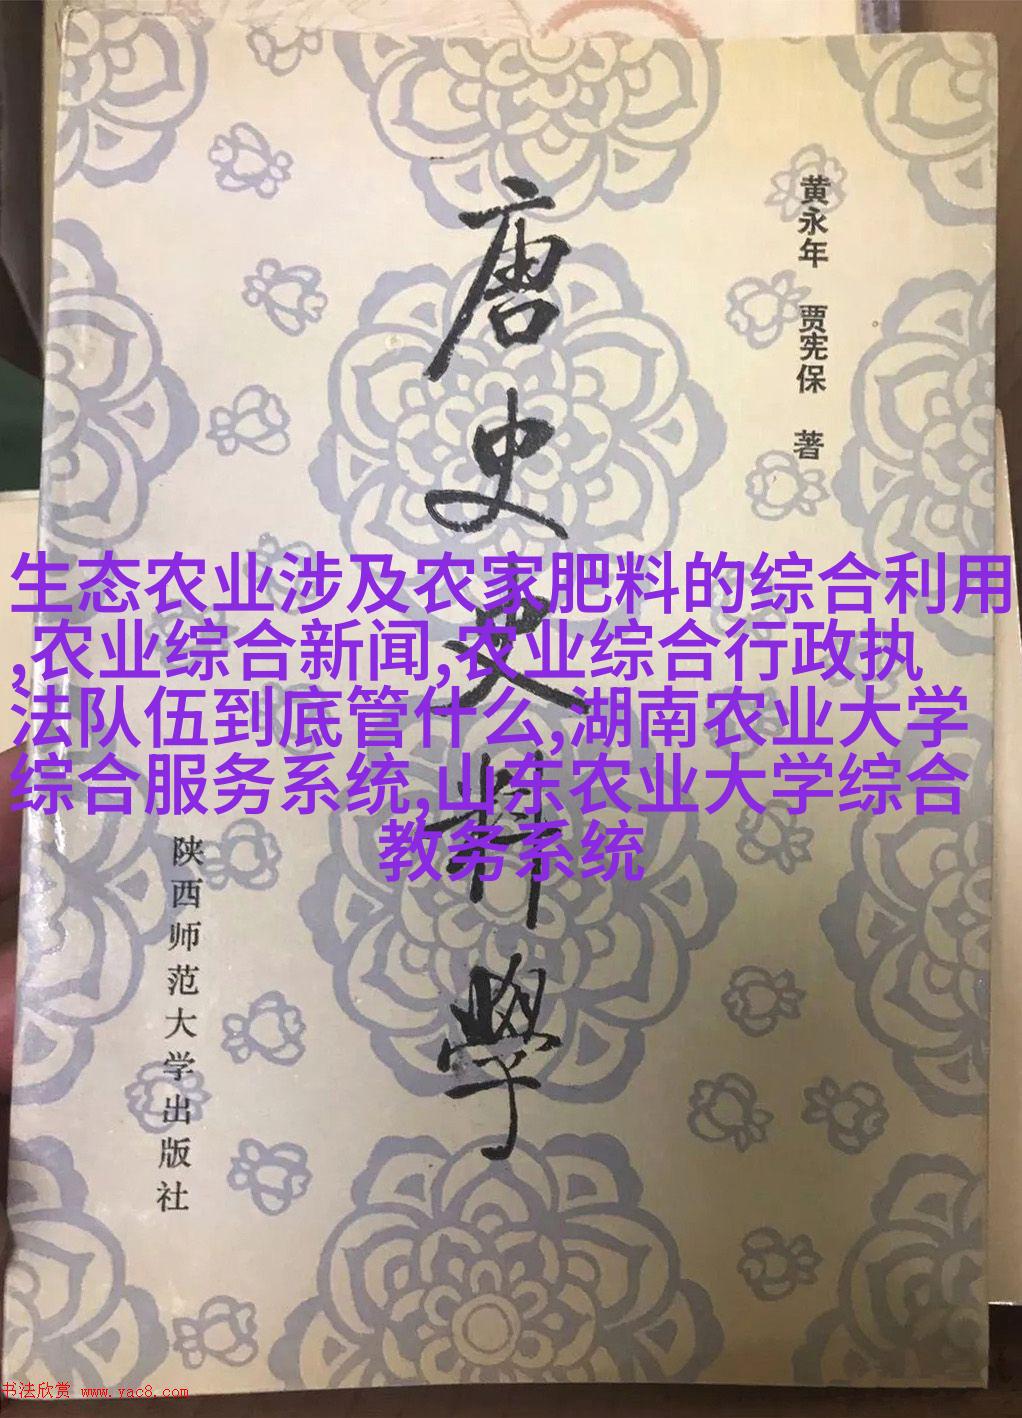 黄永年 贾宪保 著
唐史史料學
生态农业涉及农家肥料的综合利用
,农业综合新闻,农业综合行政执
法队伍到底管什么,湖南农业大学
综合服务系统,山东农业大学综合
教务系统
陕西师范大学出版社
书法欣赏 www.yac8.com